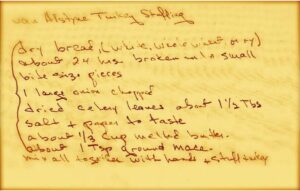 van Alstyne Turkey Stuffing
dry bread, (white, whole wheat, or ry)
about 24 hrs. broken into small
bite size pieces
1 large onion chopped
dried celery leaves about 1 1/2 Tbs
salt + paper to taste
about 1/3 cup melted butter.
about 1 Tsp ground mace.
mix all together with hands + stuff turkey